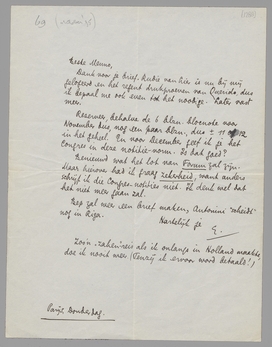 Beste Menno,
Dank voor je brief. Rudie van Lier is nu bij mij
gelogeerd en het regent drukproeven van Querido, dus
ik bepaal me ook even tot het noodige. Later vast
meer.
Reserveer, behalve de 6 blzn. blocnote voor
November dus, nog een paar blzn, dus ±
in het geheel. En voor December geef ik je het
Congres in deze notitie-vorm. Is dat goed?
Benieuwd wat het lot van Forum zal zijn.
Maar hierover had ik graag zekerheid, want anders
schrijf ik die Congres-notities niet. Ik denk wel dat
het niet meer gaan zal.
Bep zal mee een brief maken, Antoinie
nog in Riga.
Hartelijk je
E.
Zoo'n zaken-reis als ik onlangs in Holland maakte,
doe ik nooit meer (Tenzij ik ervoor word betaald!)
Parijs, Donderdag.